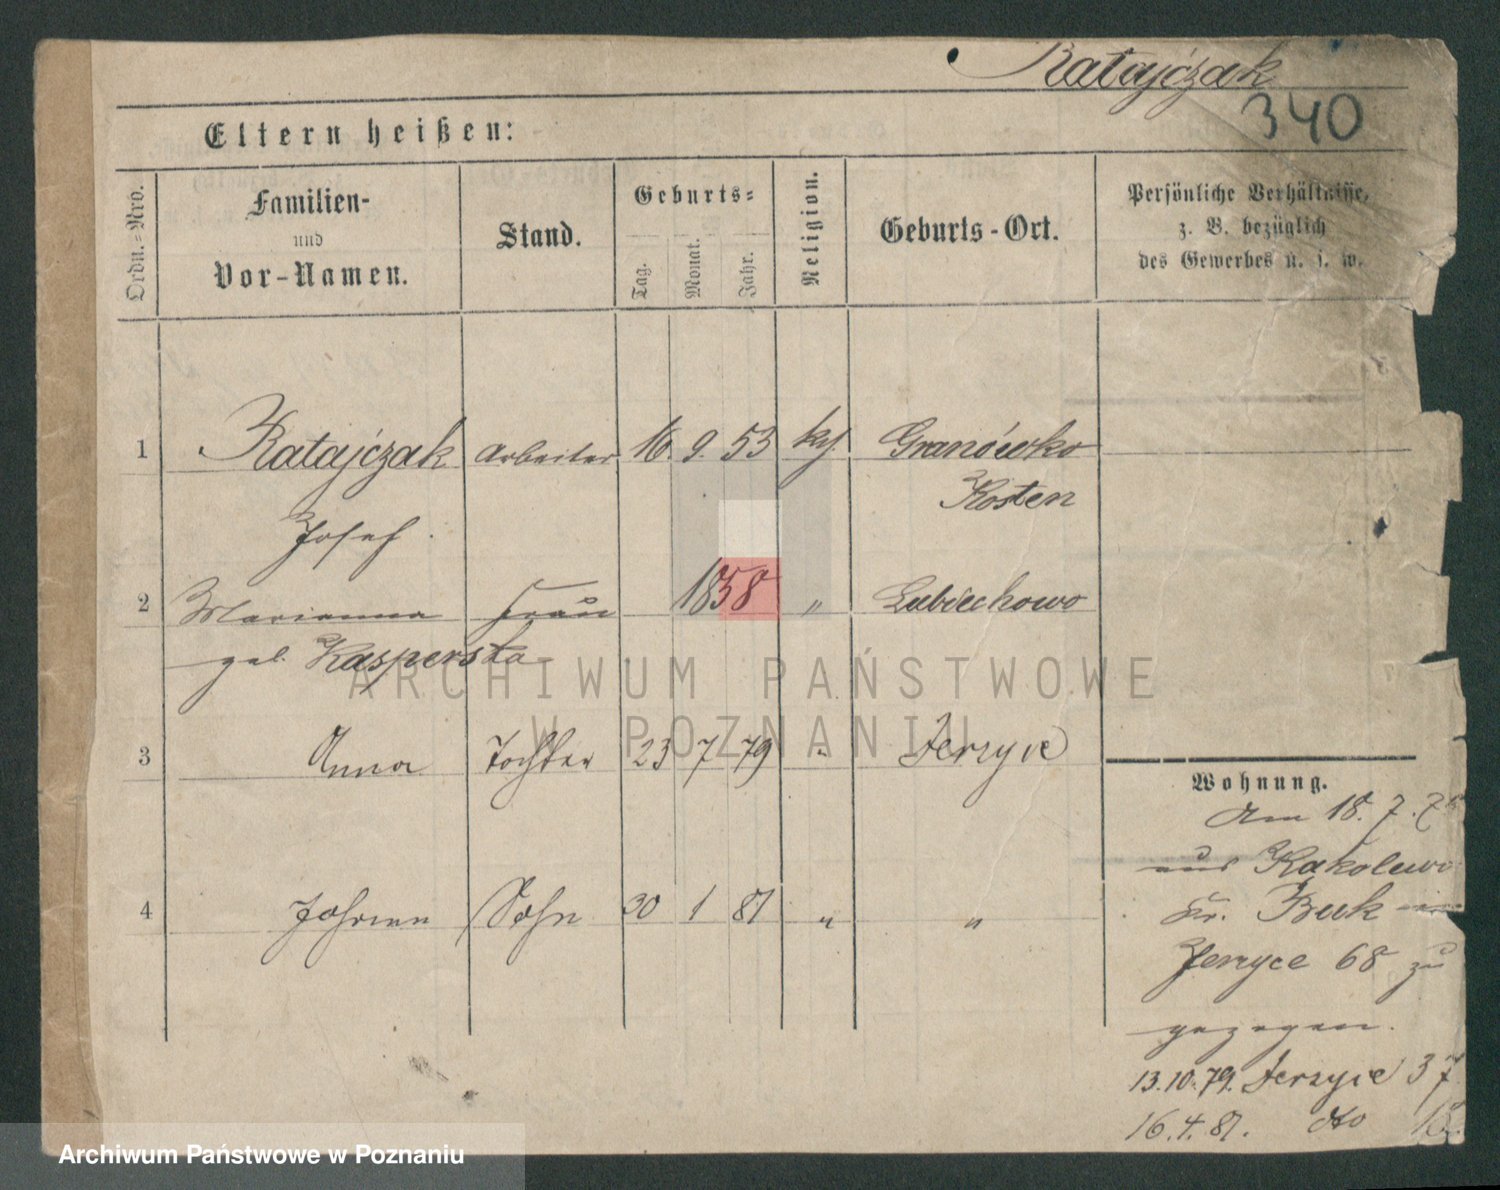 Ratajczak
340
Eltern heißen:
Ordn.=Nro.
Familien-
und
Vor-Namen.
Stand.
Geburts=
Tag.
Monat.
Jahr.
Religion.
Geburts-Ort.
Persönliche Verhältnisse,
z. B. bezüglich
des Gewerbes u. s. w.
1 Ratajczak Arbeiter 16. 9. 53 kth. Granówko
Kosten
Josef
2 Marianna Frau 1858 " Lubiechowo
geb. Kasperska
3 Anna Tochter 23 7 79 " Jerzyce
4 Johann Sohn 30 1 81 " "
Wohnung.
Am 18. 7. 78
aus Kąkolewo
Kr. Buk in
Jerzyce 68 zu
gezogen.
13.10.79. Jerzyce 37
16.4.81. dto
ARCHIWUM PAŃSTWOWE
W POZNANIU
Archiwum Państwowe w Poznaniu